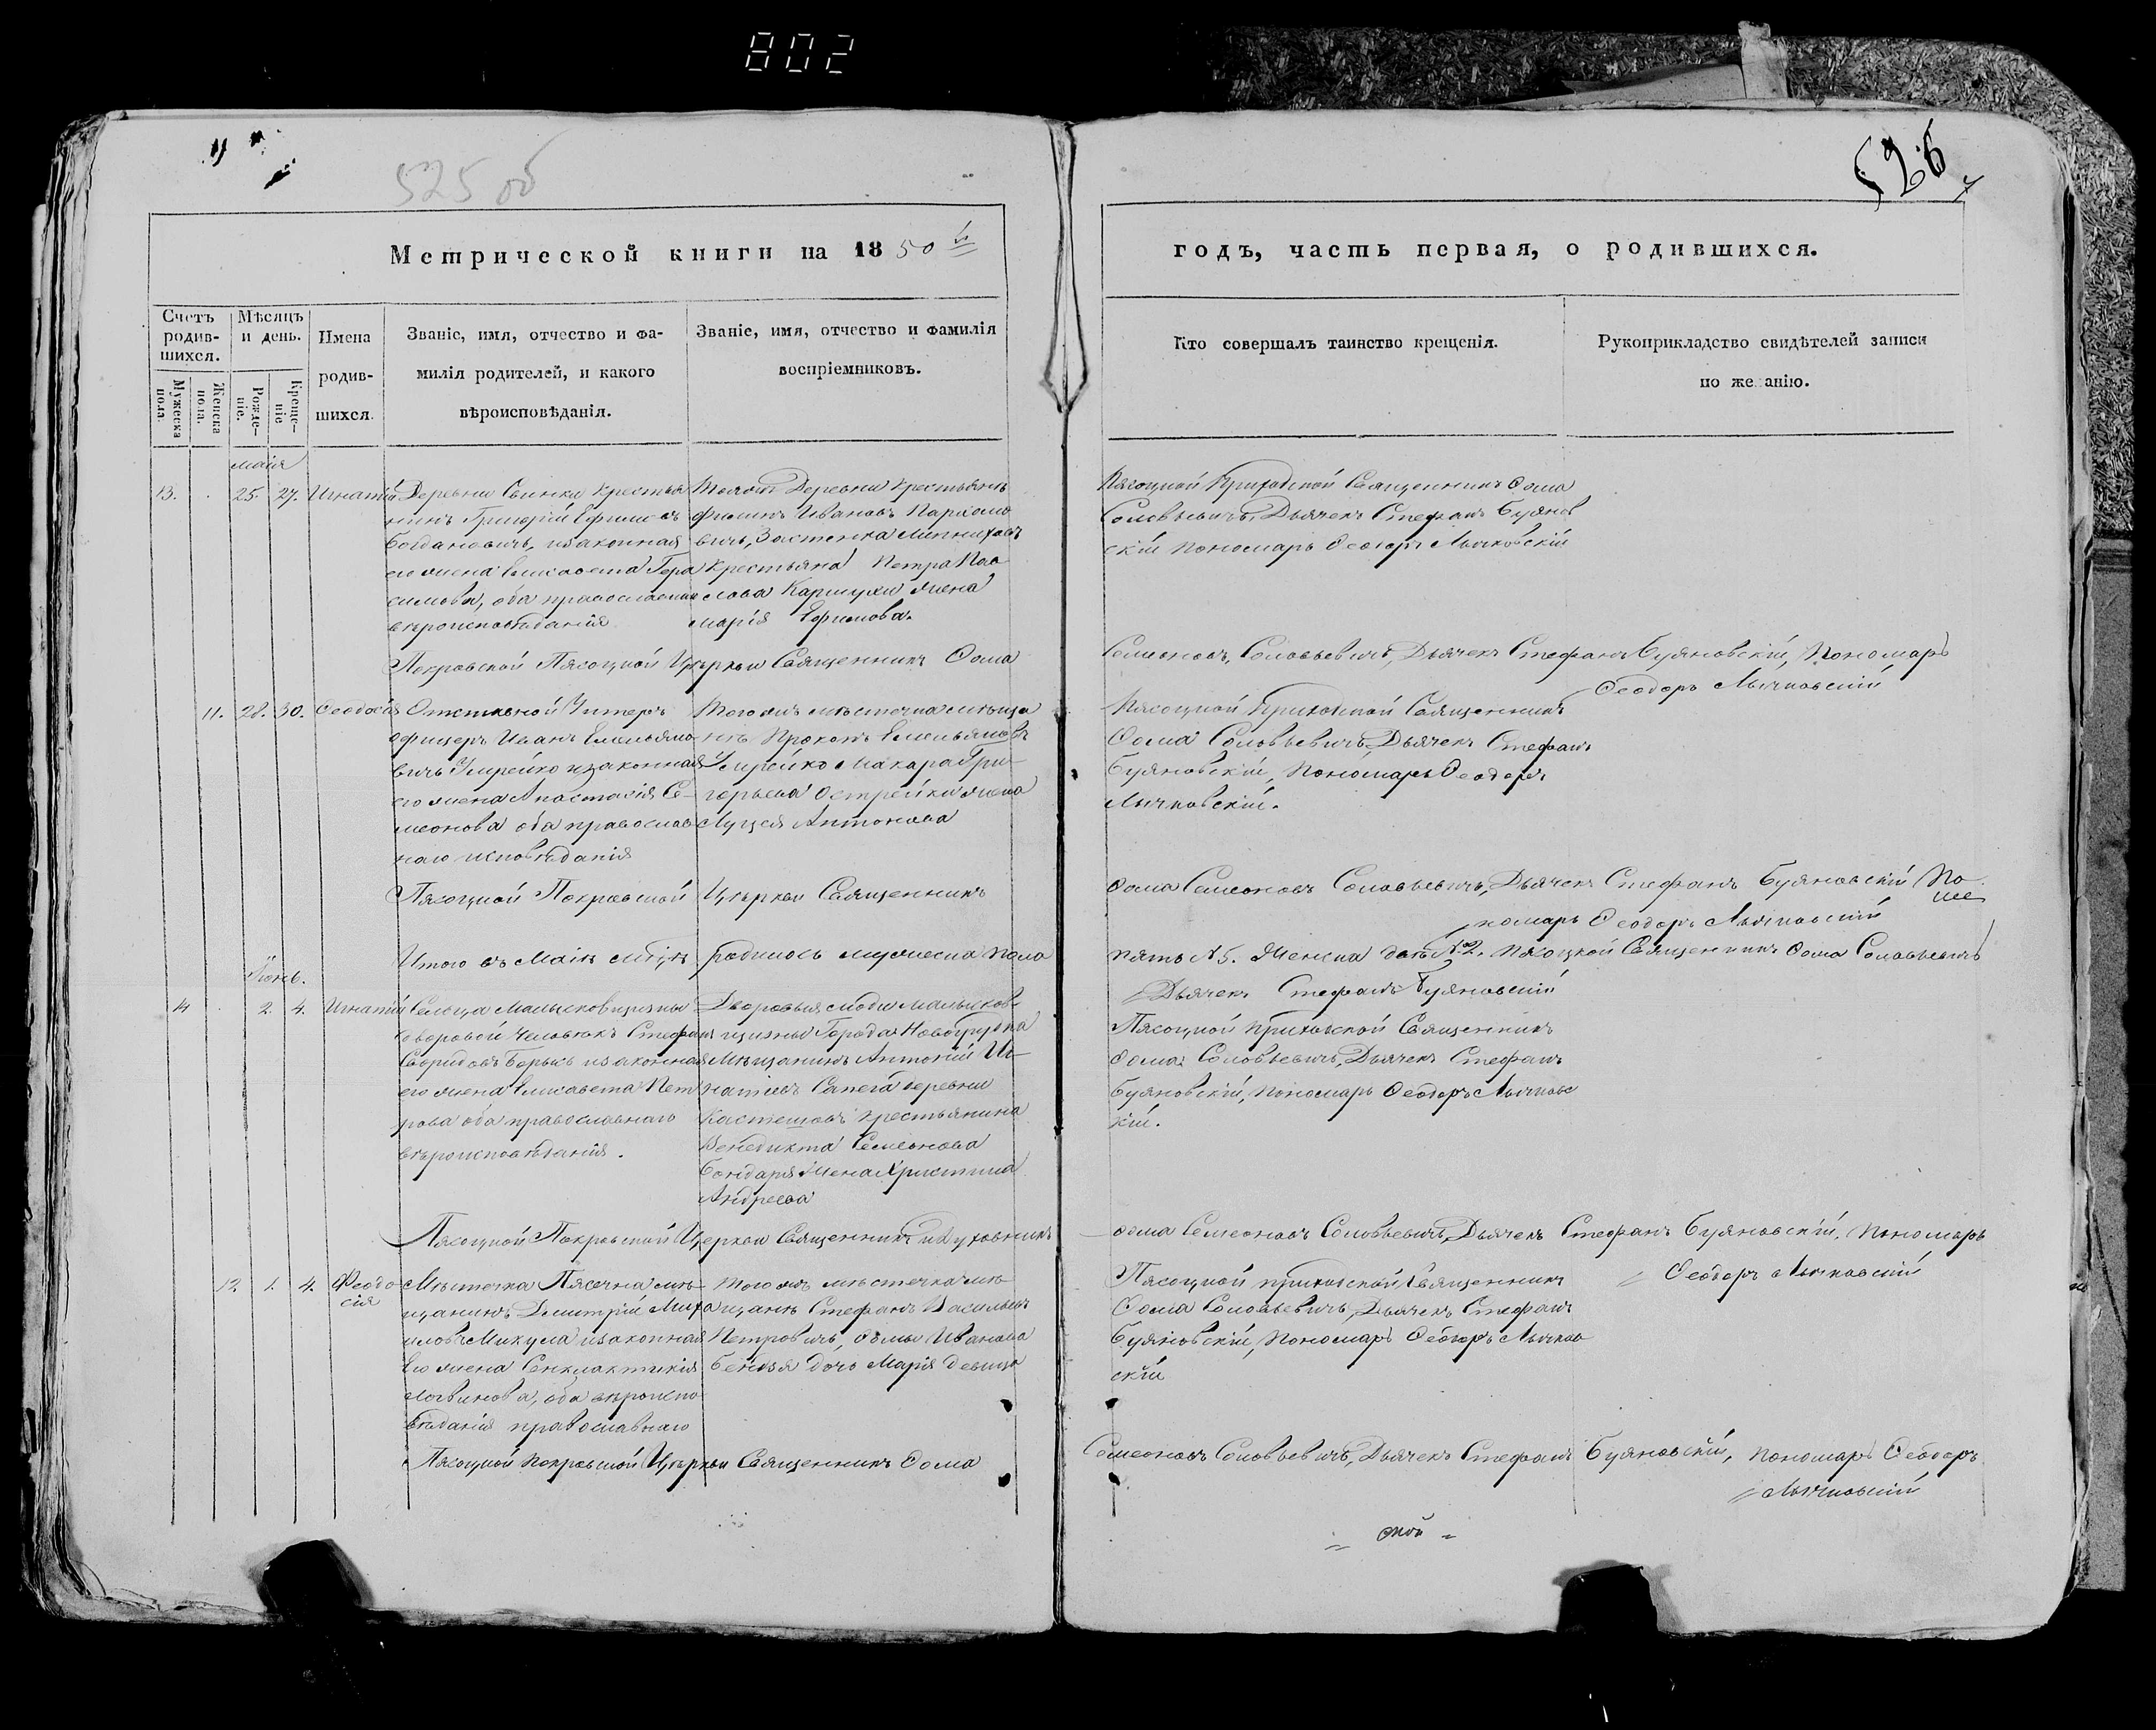 802
525 об
526
7
Метрической книги на 1850й
годъ, часть первая, о родившихся.
Счетъ родив-шихся.
Мужеска пола.
Женска пола.
Мѣсяцъ и день.
Рожде-ніе.
Креще-ніе
Имена
родив-
шихся.
Званіе, имя, отчество и фа-
милія родителей, и какого
вѣроисповѣданія.
Званіе, имя, отчество и фамилія
воспріемниковъ.
Кто совершалъ таинство крещенія.
Рукоприкладство свидѣтелей записи
по же анію.
маія
13. 25. 27. Игнатій
Деревни Свинки крестья
нинъ Григорій Ефимовъ
Богдановичъ, изаконная
его жена Елисавета Гера
симова, оба православнаго
вѣроисповѣданія
Деревни крестьянинъ
Филипъ Ивановъ Пархомо
вичъ, Застенка
Крестьяна Петра Пав
лова жена
Марія Ефимова.
Пясоцкой Приходской Священникъ Ѳома
Соловьевичъ, Дьячекъ Стефанъ Буянов
скій пономарь Ѳеодоръ Лычковскій
Покровской Пясоцкой Церкви Священникъ Ѳома
Семеоновъ, Соловьевичъ, Дьячекъ Стефанъ Буяновскій, Пономарь
Ѳеодоръ Лычковскій
11. 28. 30. Ѳеодосія
Отставной Унтеръ
офицеръ Иванъ Емельяно
вичъ изаконная
его жена Анастасія Се-
меонова оба православ
наго исповѣданія
Того жъ мѣстечка мѣща
нинъ Прокопъ Емельяновъ
Макара Гри-
горьева Острейки жена
Луцея Антонова
Пясоцкой Приходской Священникъ
Ѳома Соловьевичъ, Дьячекъ Стефанъ
Буяновскій, Пономарь Ѳеодоръ
Лычковскій.
Пясоцкой Покровской Церкви Священникъ
Ѳома Семеоновъ Соловьевичъ, Дьячекъ Стефанъ Буяновскій По
номарь Ѳеодоръ Лычковскій
Итого въ Маіѣ мѣсяцѣ родилось мужеска пола
пять №5. Женска двѣ №2. Пясоцкой Священникъ Ѳома Соловьевичъ
Дьячекъ Стефанъ Буяновскій
Іюнь.
14 2. 4. Игнатій
Сельца Малысковщизны
дворовой человѣкъ Стефанъ
Свиридовъ Борысъ изаконная
его жена Елисавета Пет
рова оба православнаго
вѣроисповѣданія.
Дворовыя люди Малысков-
щизны Города Новогрудка
Мѣщанинъ Антоній Иг-
натіевъ Сапега деревни
Крестьянина
Венедикта Семеонова
Бондаря жена Христина
Андреева
Пясоцкой приходской Священникъ
Ѳома Соловьевичъ, Дьячекъ Стефанъ
Буяновскій, пономарь Ѳеодоръ Лычковс
кій.
Пясоцкой Покровской Церкви Священникъ и Духовникъ
Ѳома Семеоновъ Соловьевичъ, Дьячекъ Стефанъ Буяновскій, Пономарь
Ѳеодоръ Лычковскій
12. 1. 4. Феодо
сія
Мѣстечка Пясечна мѣ-
щанинъ Димитрій Миха
иловъ Микула изаконная
Его жена Синклитикія
Логвинова, оба вѣроиспо
вѣданія православнаго
Того жъ мѣстечка мѣ-
щане Стефанъ Васильевъ
Петровичъ, Ѳомы Иванова
дочь Марія девица
Пясоцкой приходской Священникъ
Ѳома Соловьевичъ, Дьячекъ Стефанъ
Буяновскій, Пономарь Ѳеодоръ Лычков
скій
Пясоцкой Покровской Церкви Священникъ Ѳома
Семеоновъ Соловьевичъ, Дьячекъ Стефанъ Буяновскій, пономарь Ѳеодоръ
Лычковскій